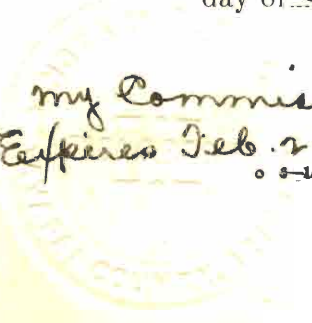 day of
my Commis
Expires Feb. 2